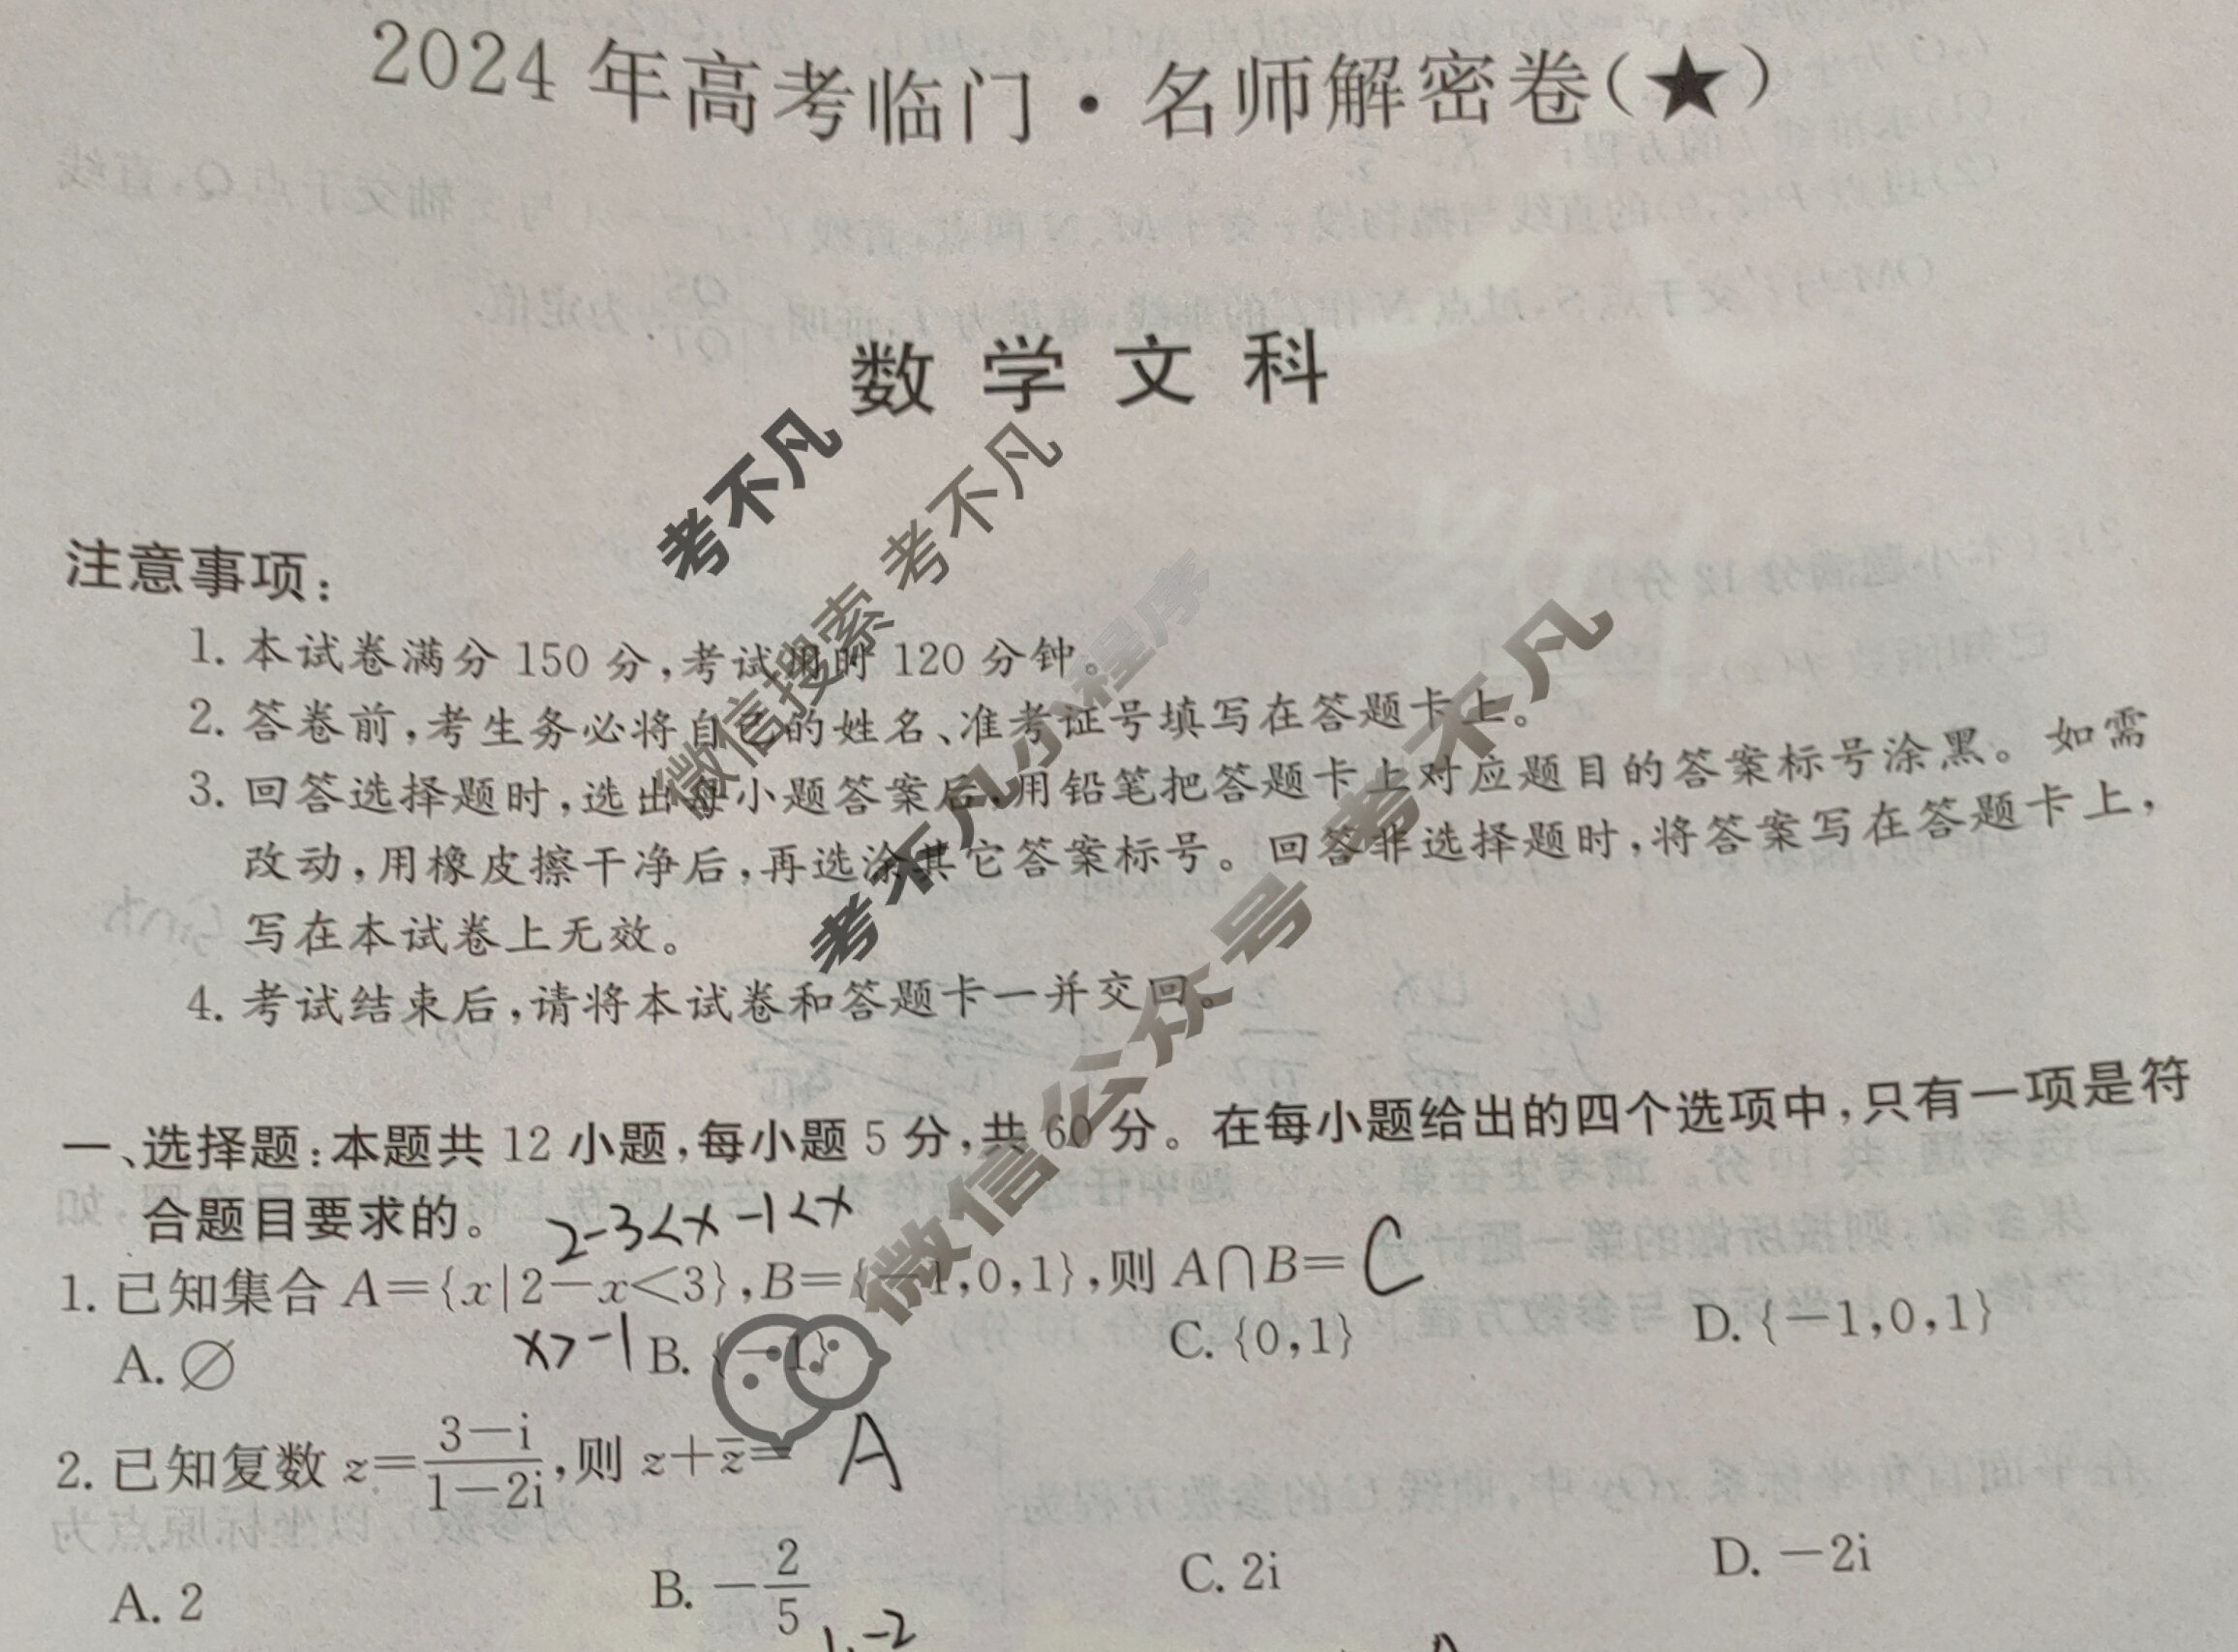 2024年高考临门·名师解密卷(★)
数学文科
考不凡
微信搜索 考不凡
考不凡小程序
微信公众号 考不凡
注意事项:
1. 本试卷满分 150 分,考试用时 120 分钟。
2. 答卷前,考生务必将自己的姓名、准考证号填写在答题卡上。
3. 回答选择题时,选出每小题答案后,用铅笔把答题卡上对应题目的答案标号涂黑。如需
改动,用橡皮擦干净后,再选涂其它答案标号。回答非选择题时,将答案写在答题卡上,
写在本试卷上无效。
4. 考试结束后,请将本试卷和答题卡一并交回。
一、选择题:本题共 12 小题,每小题 5 分,共 60 分。在每小题给出的四个选项中,只有一项是符
合题目要求的。
2-3<x -1<x
1. 已知集合 A={x|2-x<3},B={-1,0,1},则 A∩B= C
x>-1
A. ∅ B. {-1} C. {0,1} D. {-1,0,1}
2. 已知复数 z=\frac{3-i}{1-2i},则 z+\overline{z}= A
A. 2 B. -\frac{2}{5} C. 2i D. -2i